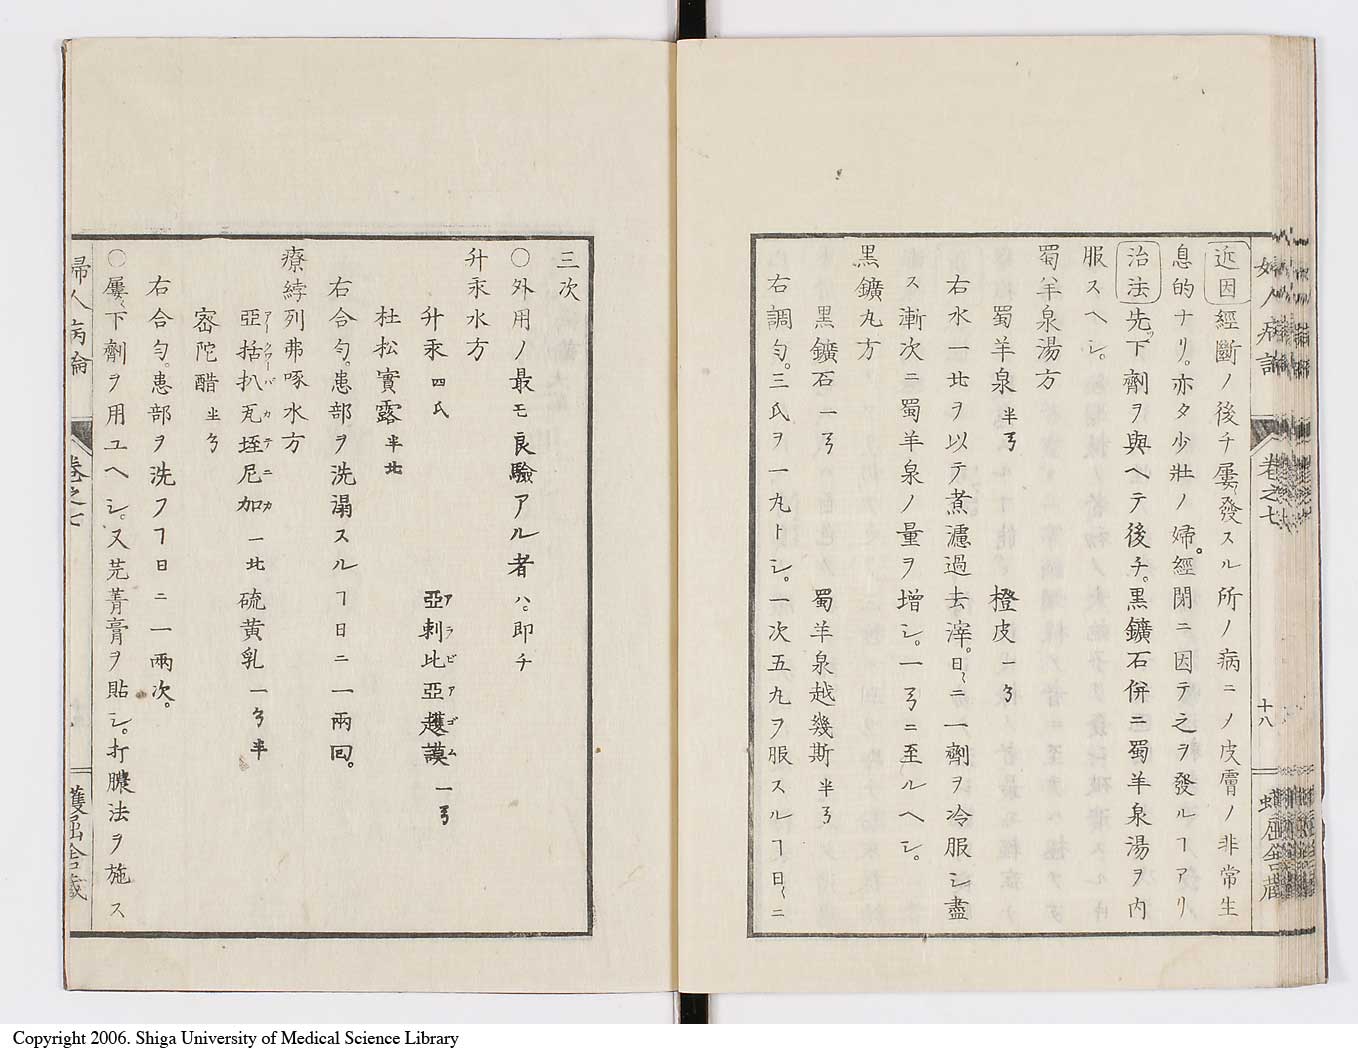 近因經斷ノ後チ屢〻發スル所ノ病ニノ皮膚ノ非常生
息的ナリ。亦タ少壯ノ婦。經閉ニ因テ之ヲ發ルヿアリ
治法先ッ下劑ヲ與ヘテ後チ。黒鑛石併ニ蜀羊泉湯ヲ內
服スヘシ。
蜀羊泉湯方
蜀羊泉 半弓 橙皮 一弓
右水一北ヲ以テ煮濾過去滓。日〻ニ一劑ヲ冷服シ盡
ス漸次ニ蜀羊泉ノ量ヲ增シ。一弓ニ至ルヘシ。
黒鑛丸方
黒鑛石 一弓 蜀羊泉越幾斯 半弓
右調勻。三氏ヲ一丸トシ。一次五丸ヲ服スルヿ日〻ニ
婦人病論 卷之七 十八 蠖屈舍藏
三次
〇外用ノ最モ良驗アル者ハ。即チ
升汞水方
升汞 四氏 亞剌比亞護謨 一弓
アラビアゴム
杜松實露 半北
右合勻。患部ヲ洗滌スルヿ日ニ一兩回。
療綍列弗啄水方
亞括扒瓦垤尼加 一北 硫黄乳 一弓半
アークワーバカテニカ
密陀醋 半弓
右合勻。患部ヲ洗フヿ日ニ一兩次。
〇屢〻下劑ヲ用ユヘシ。又芫菁膏ヲ貼シ。打膿法ヲ施ス
婦人病論 卷之七 蠖屈舍藏
Copyright 2006. Shiga University of Medical Science Library